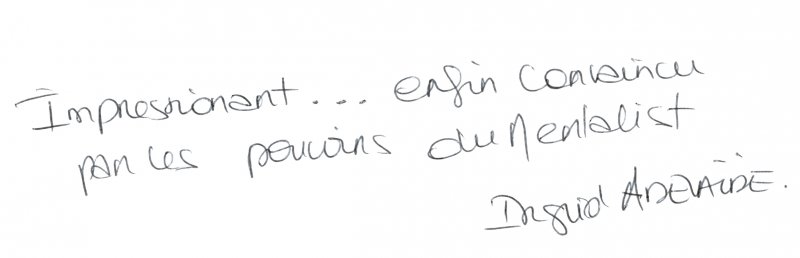 Impressionant... enfin convaincu
par les pouvoirs du Mentalist
Ingrid ADELAÏDE.